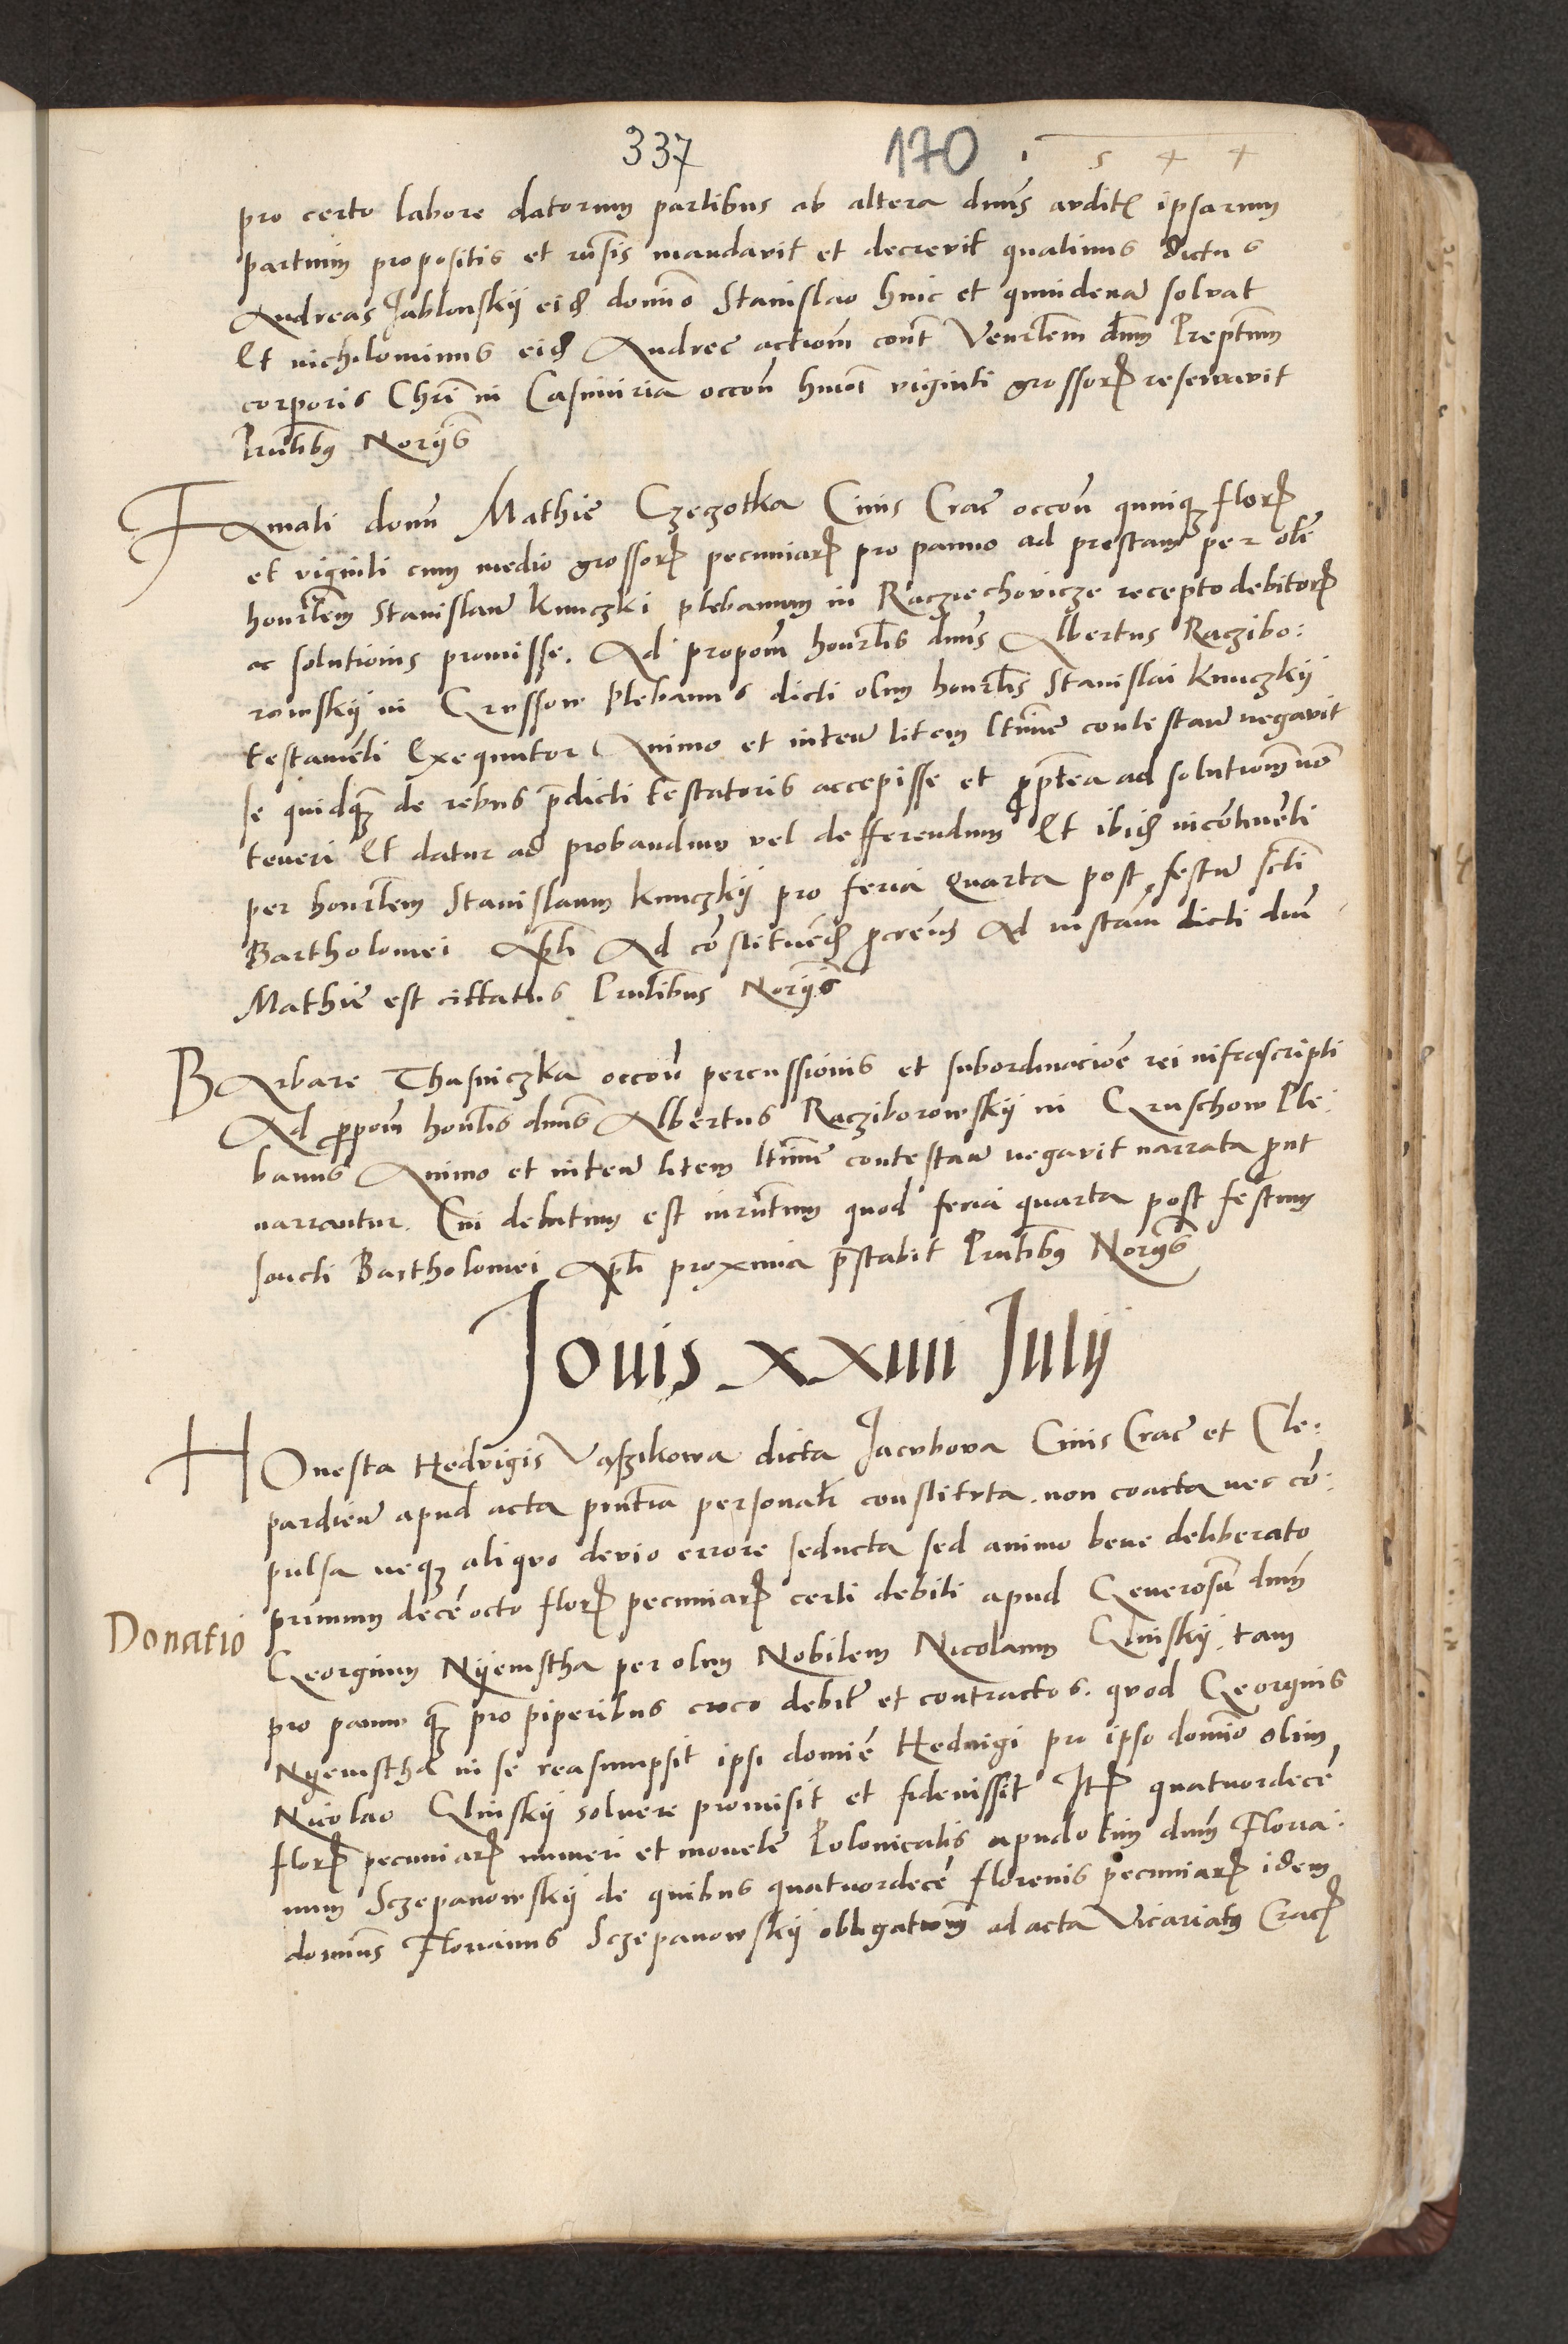 337 170 1 5 4 4
pro certo labore datorum partibus ab altera dnus audit ipsarum
partium propositis et rnsis mandavit et decrevit quatinus dictus
Andreas Jablonskÿ eid domino Stanislao hinc et quindenam solvat
Et nichilominus eid Andree actionem cont Venerlem dnm Preptum
corporis Chri in Casimiria occone hmoi viginti grossor reservavit
Pntibus Noriis
Famati domini Mathie Czeczotka Civis Crac occone quinqz flor
et viginti cum medio grossor pecuniar pro panno ad prestam per olim
honrlem Stanislaum Kunczki plebanum in Racziechovicze recepto debitor
ac solutionis promisse. Ad propom honrlis dnus Albertus Raczibo:
rowskÿ in Grussow Plebanus dicti olim honrlis Stanislai Kunczkÿ
testamenti Exequutor Animo et inten litem ltime contestan negavit
se quidqz de rebus pdicti testatoris accepisse et pptea ad solutionem non
teneri Et datur ad probandum vel defferendum Et ibid incontinenti
per honrlem Stanislaum Kunczkÿ pro feria quarta post festum scti
Bartholomei Apli Ad constituend pcrem Ad instam dicti dni
Mathie est cittatus Pntibus Noriis
Barbare Thasniczka occone percussionis et subordinacione rei infrascripti
Ad ppom honrlis dnus Albertus Racziborowskÿ in Gruschow Ple:
banus Animo et inten litem ltime contestan negavit narrata pnt
narrantur. Cui debitum est iurntum quod feria quarta post festum
sancti Bartholomei Apli proxima pstabit Pntibus Noriis
Jovis XXIIII Julÿ
Honesta Hedvigis Vaszikowa dicta Jacubova Civis Crac et Cle:
pardien apud acta pntia personalr constituta. non coacta nec com:
pulsa neqz aliquo devio errore seducta sed animo bene deliberato
primum decem octo flor pecuniar certi debiti apud Generosum dnm
Donatio
Georgium Nyemstha per olim Nobilem Nicolaum Glinskÿ. tam
pro panno qz pro piperibus croco debite et contractos. quod Georgius
Nyemstha in se reasumpsit ipsi domine Hedvigi pro ipso domino olim
Nicolao Glinskÿ solvere promisit et fideiussit Itm quatuordecem
flor pecuniar numeri et monete Polonicalis apud olim dnm Floria:
num Sczepanowskÿ de quibus quatuordecem florenis pecuniar idem
dominus Florianus Sczepanowskÿ obligationem ad acta Vicariatus Crac